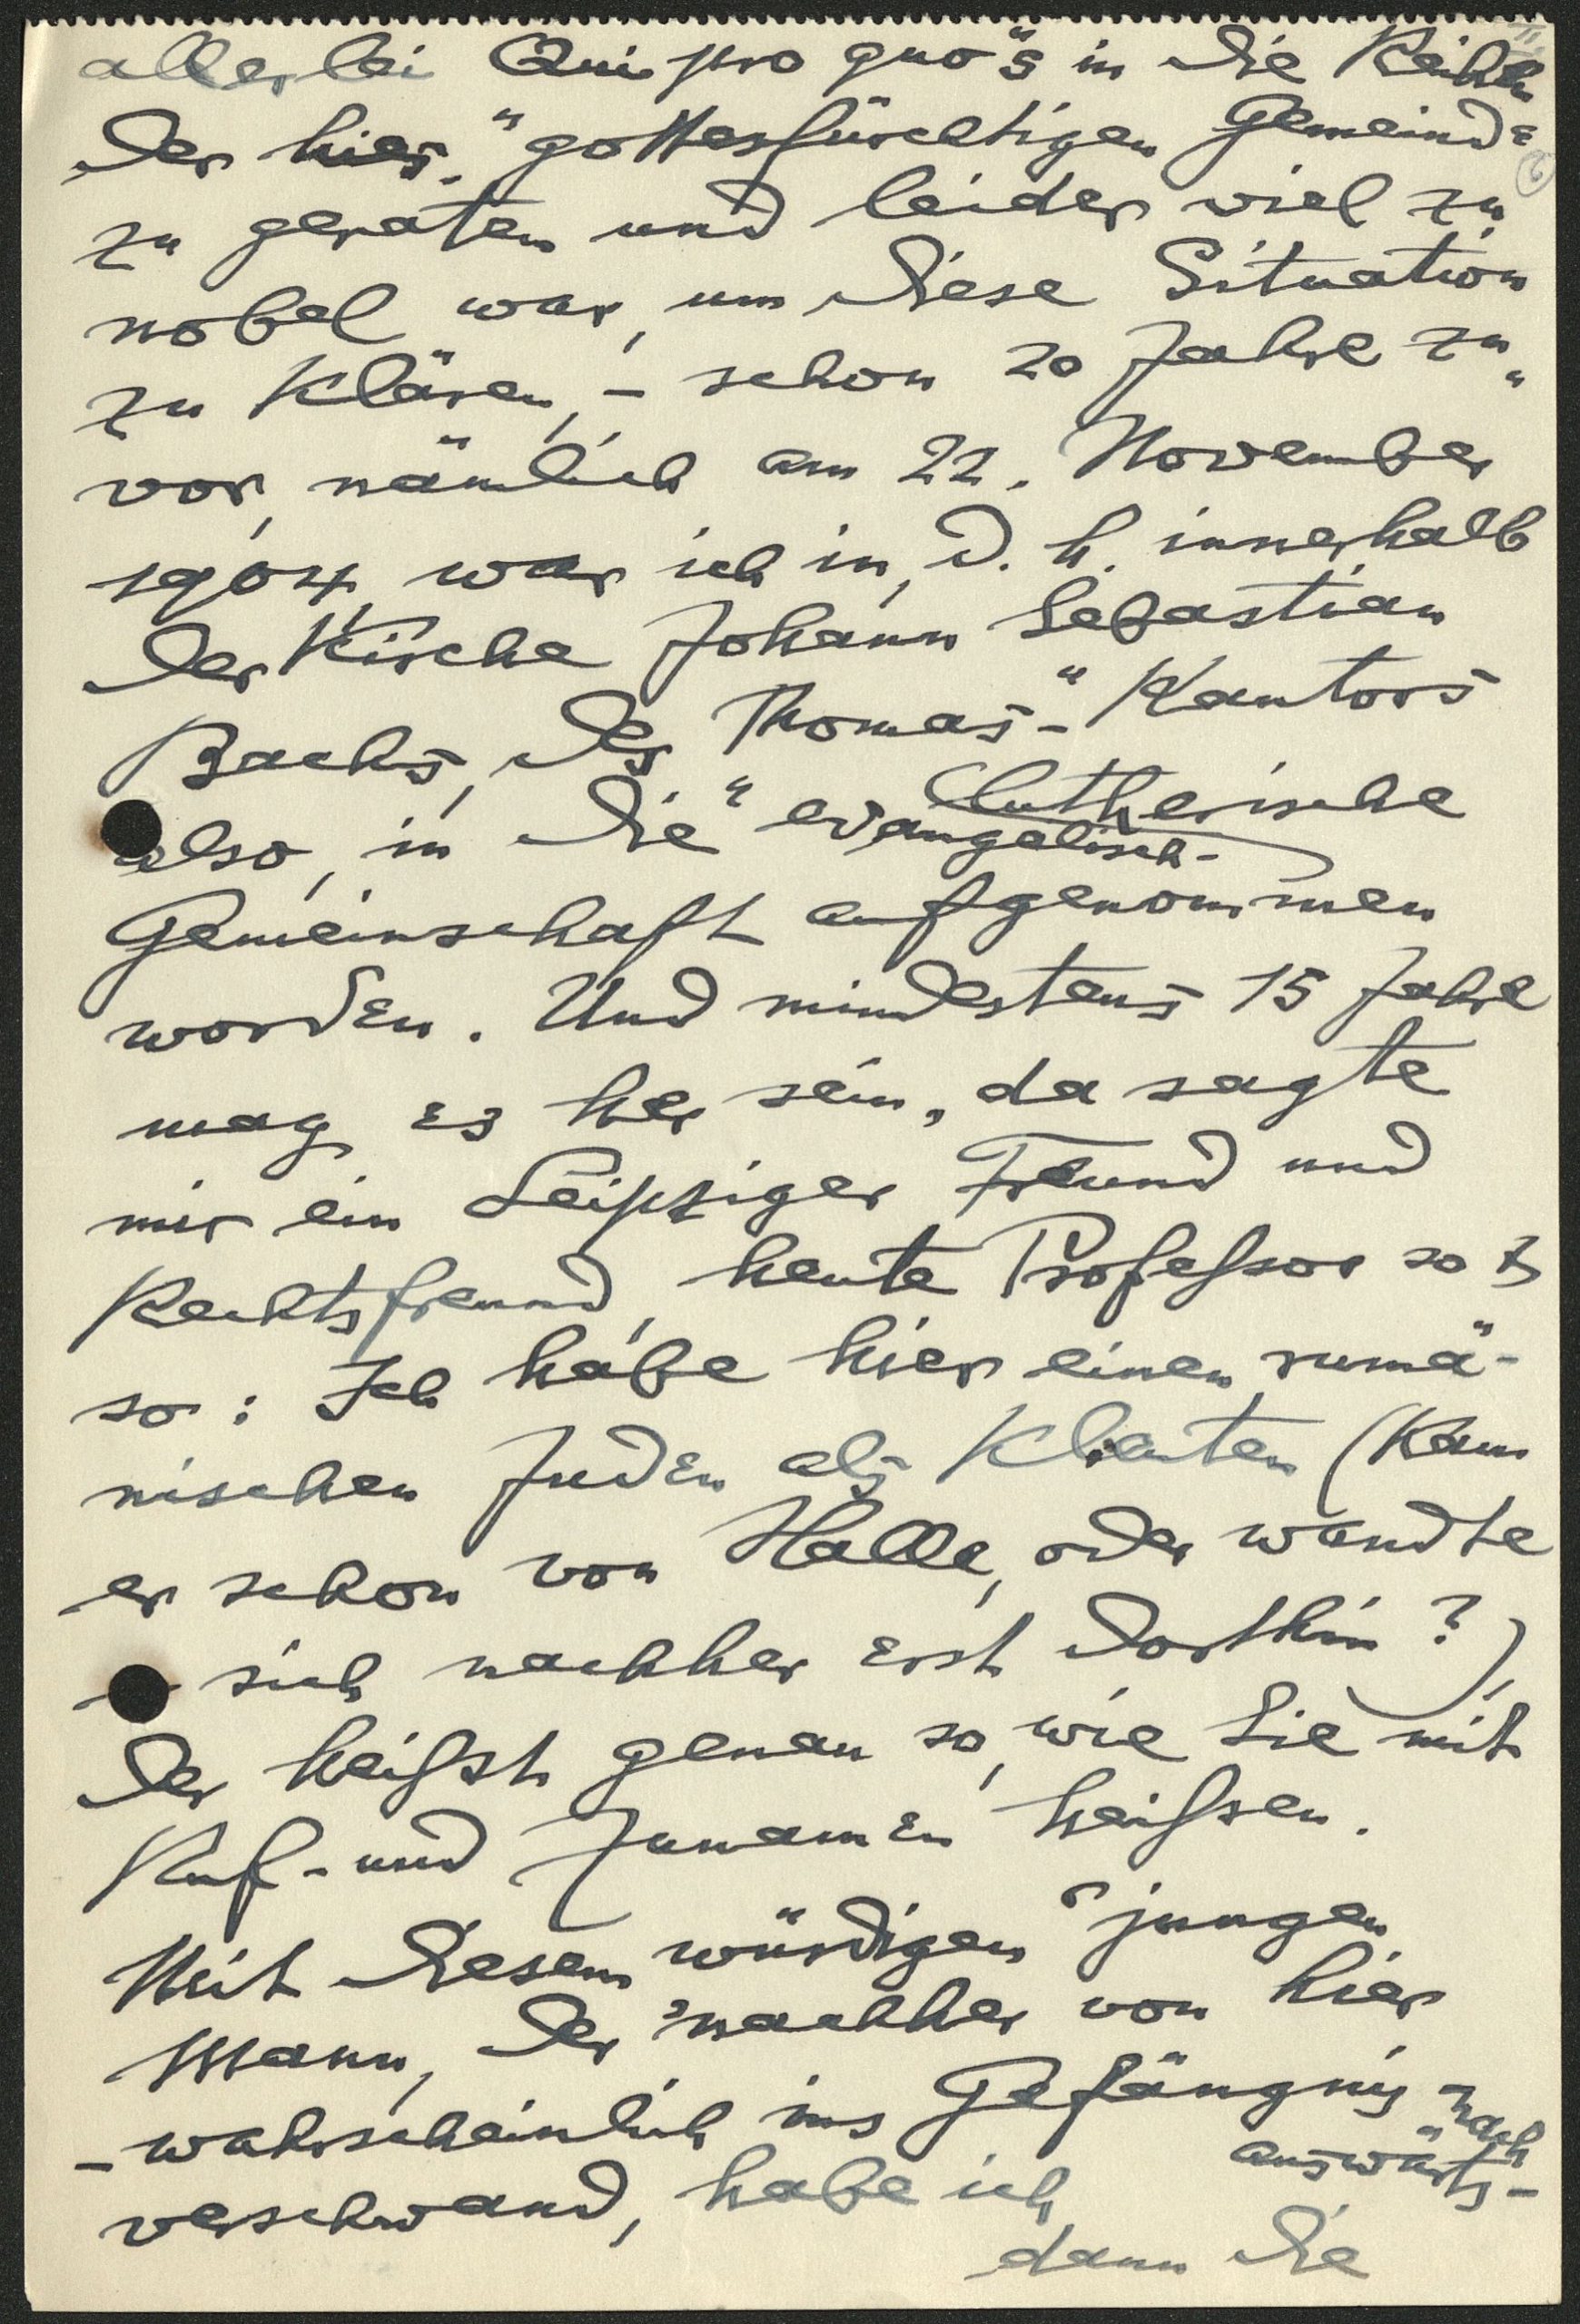 allerlei Qui pro quo's in die Reihen
der hies. "gottesfürchtigen Gemeinde
zu geraten und leider viel zu
nobel war, um diese Situation
zu klären, - schon 20 Jahre zu„
vor, nämlich am 22. November
1904, war ich in, d. h. innerhalb
der Kirche Johann Sebastian
Bachs, des Thomas-" Kantors
also, in die "evangelisch-lutherische
Gemeinschaft aufgenommen
worden. Und mindestens 15 Jahre
mag es her sein, da sagte
mir ein Leipziger Freund und
Rechtsfreund, heute Professor so &
so: Ich habe hier einen rumä-
nischen Juden als Klienten (kam
er schon von Halle, oder wandte
er sich nachher erst dorthin?),
der heißt genau so, wie Sie mit
Ruf- und Zunamen heißen.
Mit diesem würdigen "jungen
Mann, der nachher von hier
- wahrscheinlich ins Gefängnis nach
auswärts -
verschwand, habe ich
dann die